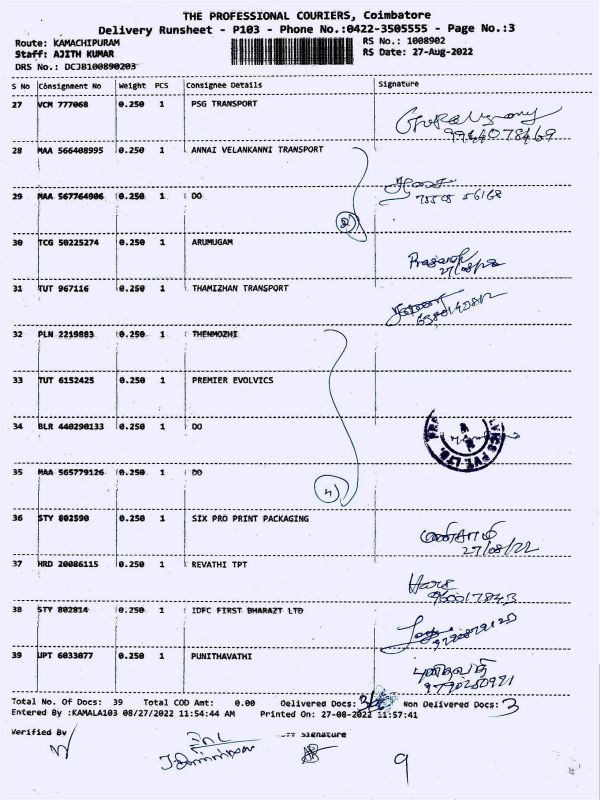 THE PROFESSIONAL COURIERS, Coimbatore
Delivery Runsheet - P103 - Phone No.:0422-3505555 - Page No.:3
Route: KAMACHIPURAM
RS No.: 1008902
Staff: AJITH KUMAR
RS Date: 27-Aug-2022
DRS No.: DCJB100890203
S No Consignment No Weight PCS Consignee Details Signature
27 VCM 777068 0.250 1 PSG TRANSPORT
9944078469
28 MAA 566408995 0.250 1 ANNAI VELANKANNI TRANSPORT
29 MAA 567764906 0.250 1 DO
2
30 TCG 50225274 0.250 1 ARUMUGAM
27/08/22
31 TUT 967116 0.250 1 THAMIZHAN TRANSPORT
32 PLN 2219883 0.250 1 THENMOZHI
33 TUT 6152425 0.250 1 PREMIER EVOLVICS
34 BLR 440290133 0.250 1 DO
PVT. LTD.
35 MAA 565779126 0.250 1 DO
4
36 STY 802590 0.250 1 SIX PRO PRINT PACKAGING
27/08/22
37 HRD 20086115 0.250 1 REVATHI TPT
38 STY 802814 0.250 1 IDFC FIRST BHARAZT LTD
39 UPT 6033077 0.250 1 PUNITHAVATHI
புனிதவதி
Total No. Of Docs: 39 Total COD Amt: 0.00 Delivered Docs: 36 Non Delivered Docs: 3
Entered By :KAMALA103 08/27/2022 11:54:44 AM Printed On: 27-08-2022 11:57:41
Verified By
Signature
9